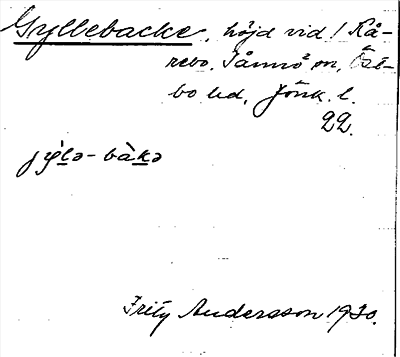 Gyllebacke, höjd vid l Kå-
rebo, Tånnö sn, Öst-
bo hd, Jönk. l.
22.
jýlə-bàkə
Fritz Andersson 1930.